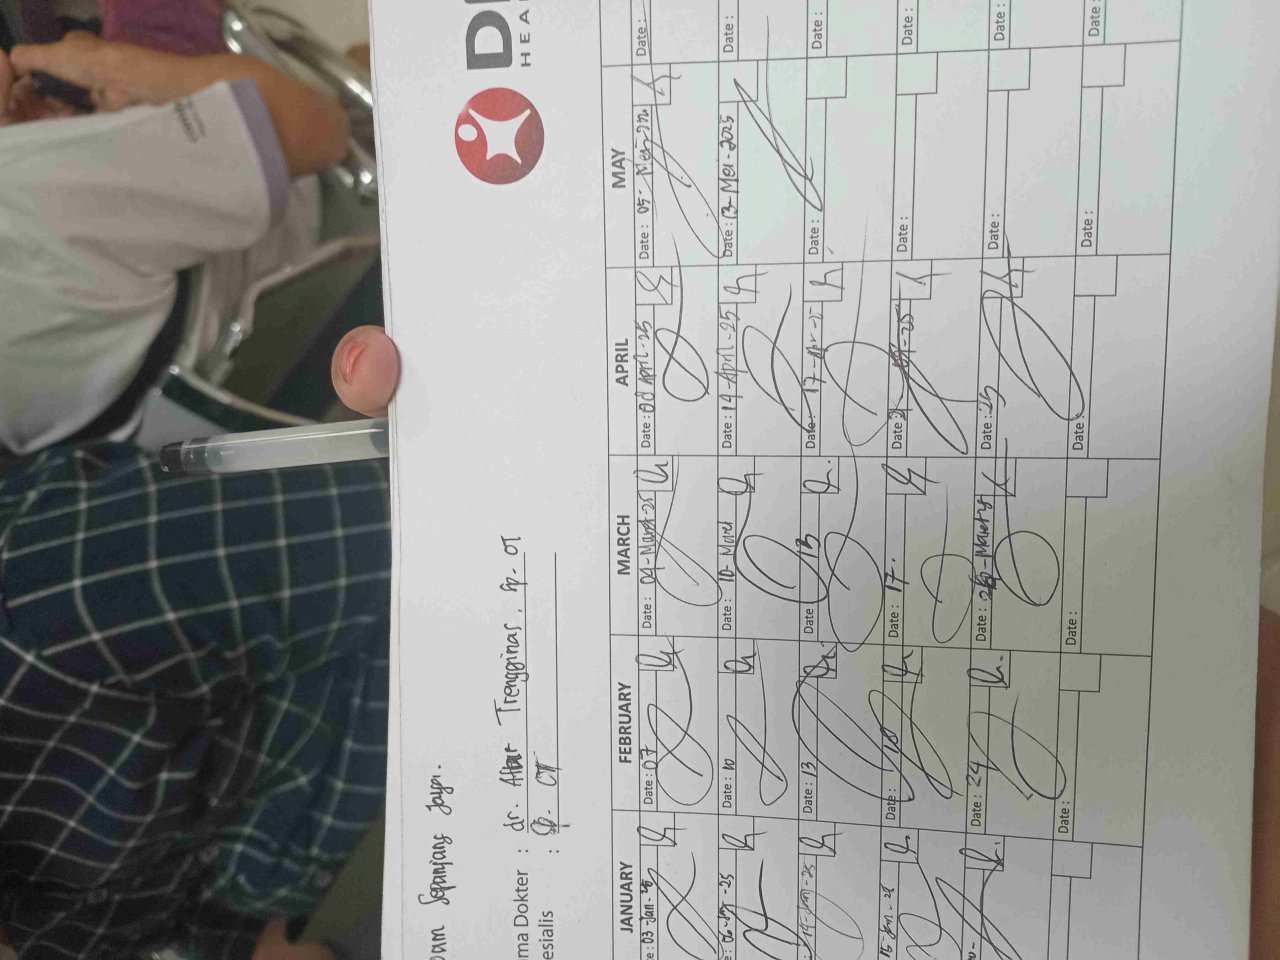 Sepanjang Jaya.
ma Dokter : dr. Trengginas, Sp. OT
esialis : Sp. OT
D
HEA
JANUARY FEBRUARY MARCH APRIL MAY
e: 03-Jan-25 Date: 07 Date: 04-Maret-25 Date: April-25 Date: 05- Date:
-25 Date: 10 Date: 10-Maret Date: 14-April-25 Date: 13-Mei-2025 Date:
14-Jan-25 Date: 13 Date: 13 Date: 17-Apr-25 Date: Date:
15-Jan-25 Date: 18 Date: 17. Date: -25 Date: Date:
Date: 24 Date: Date: 25 Date: Date:
Date: Date: Date: Date: Date: